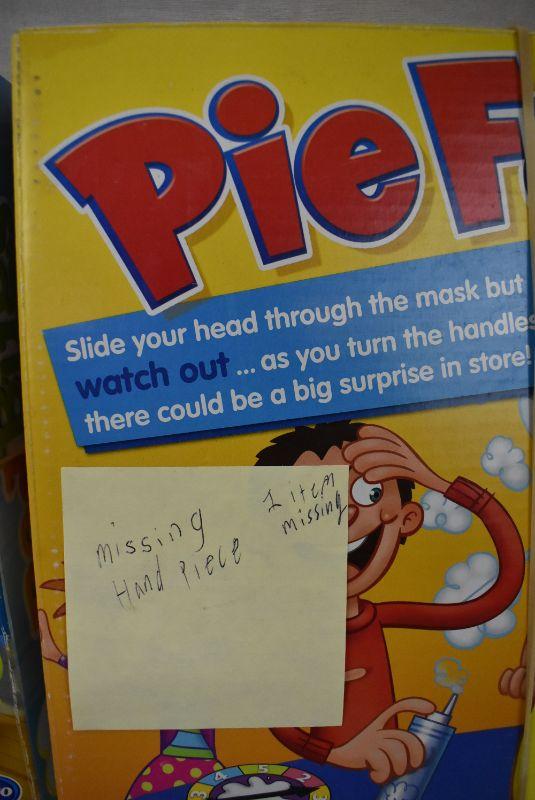 Pie F
Slide your head through the mask but
watch out ... as you turn the handles
there could be a big surprise in store!
1 item
missing
missing
Hand Piece
4 5 2